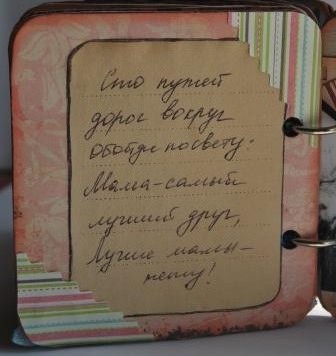 Сто путей
дорог вокруг
обойди по свету:
Мама-самый
лучший друг,
Лучше мамы-
нету!